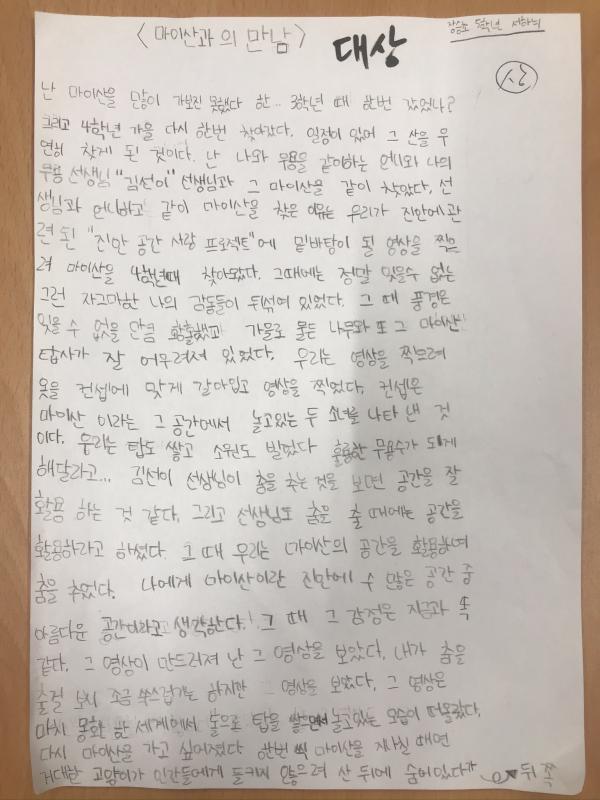 <마이산과의 만남>
대상
장승초 5학년
산
난 마이산을 많이 가보진 못했다 한.. 3학년 때 한번 갔었나?
그리고 4학년 가을 다시 한번 찾아갔다. 일정이 있어 그 산을 우
연히 찾게 된 것이다. 난 나와 무용을 같이하는 언니와 나의
무용 선생님 "김선이" 선생님과 그 마이산을 같이 찾았다. 선
생님과 언니하고 같이 마이산을 찾은 이유는 우리가 진안에 관
련 된 "진안 공간 사랑 프로젝트"에 밑바탕이 될 영상을 찍으
려 마이산을 4학년때 찾아왔다. 그때에는 정말 잊을수 없는
그런 자그마한 나의 감동들이 뒤섞여 있었다. 그 때 풍경은
잊을 수 없을 만큼 황홀했고 가을로 물든 나무와 또 그 마이산
탑사가 잘 어우려져 있었다. 우리는 영상을 찍으려
옷을 컨셉에 맞게 갈아입고 영상을 찍었다. 컨셉은
마이산 이라는 그 공간에서 놀고있는 두 소녀를 나타 낸 것
이다. 우리는 탑도 쌓고 소원도 빌었다 훌륭한 무용수가 되게
해달라고... 김선이 선생님이 춤을 추는 것을 보면 공간을 잘
활용 하는 것 같다. 그리고 선생님도 춤을 출 때에는 공간을
활용하라고 하셨다. 그 때 우리는 마이산의 공간을 활용하여
춤을 추었다. 나에게 마이산이란 진안에 수 많은 공간 중
아름다운 공간이라고 생각한다. 그 때 그 감정은 지금과 똑
같다. 그 영상이 만드러져 난 그 영상을 보았다. 내가 춤을
출걸 보시 조금 쑥스럽기는 하지만 그 영상을 보았다. 그 영상은
마치 동화 한 세계에서 돌으로 탑을 쌓으면서 놀고있는 모습이 떠올랐다.
다시 마이산을 가고 싶어졌다 한번 씩 마이산을 지나칠 때면
거대한 고양이가 인간들에게 들키지 않으려 산 뒤에 숨어있다가
뒤 쪽